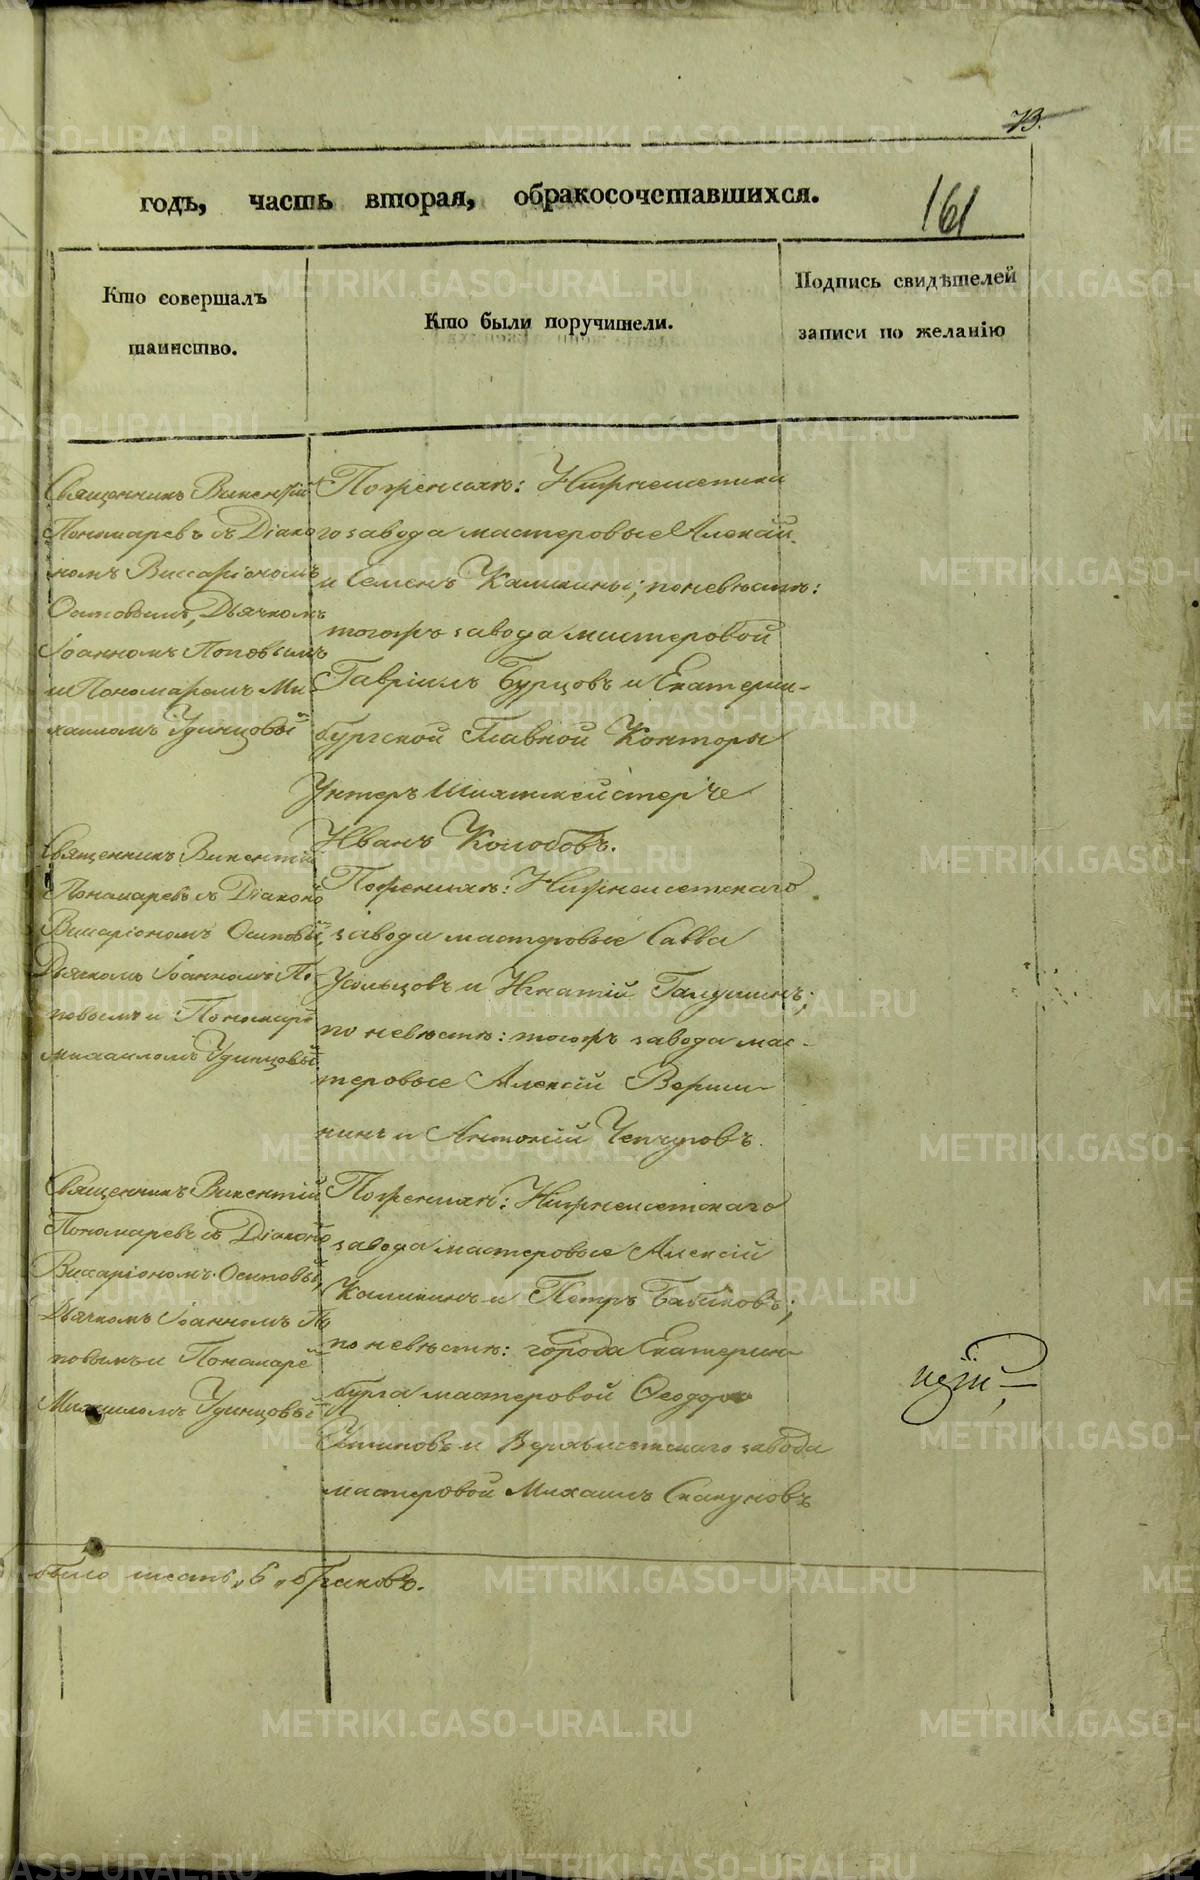 73.
годъ, часть вторая, обракосочетавшихся.
161
Кто совершалъ
таинство.
Кто были поручители.
Подпись свидѣтелей
записи по желанію
Священникъ Викентій
Пономаревъ съ Діако
номъ Виссаріономъ
Осиповымъ, Дьячкомъ
Іоанномъ Поповымъ
и Пономаремъ Ми
хаиломъ Удинцовы
По женихѣ: Нижнеисетска
го завода мастеровые Алексѣй
и Семенъ Каликины; по невѣстѣ:
тогожъ завода мастеровой
Гавріилъ Бурцовъ и Екатерин-
бургской Главной Конторы
Унтеръ Шихтмейстеръ
Иванъ Колобовъ.
Священникъ Викентій
Пономаревъ съ Діаконо
Висаріономъ Осиповы
Дьячкомъ Іоанномъ По
повымъ и Пономаре
Михаиломъ Удинцовы
По женихѣ: Нижнеисетскаго
завода мастеровые Савва
Усольцовъ и Игнатій Галушинъ;
по невѣстѣ: тогожъ завода мас-
теровые Алексій Верши-
нинъ и Антоній Чепчуговъ.
Священникъ Викентій
Пономаревъ съ Діаконо
Виссаріономъ Осиповы,
Дьячкомъ Іоанномъ По
повымъ и Пономаре
Михаиломъ Удинцовы
По женихѣ: Нижнеисетскаго
завода мастеровые Алексій
Каликинъ и Петръ Бабиковъ;
по невѣстѣ: города Екатерин-
бурга мастеровой Ѳеодоръ
и Верхъисетскаго завода
мастеровой Михаилъ Скакуновъ
было шесть „6„ браковъ.